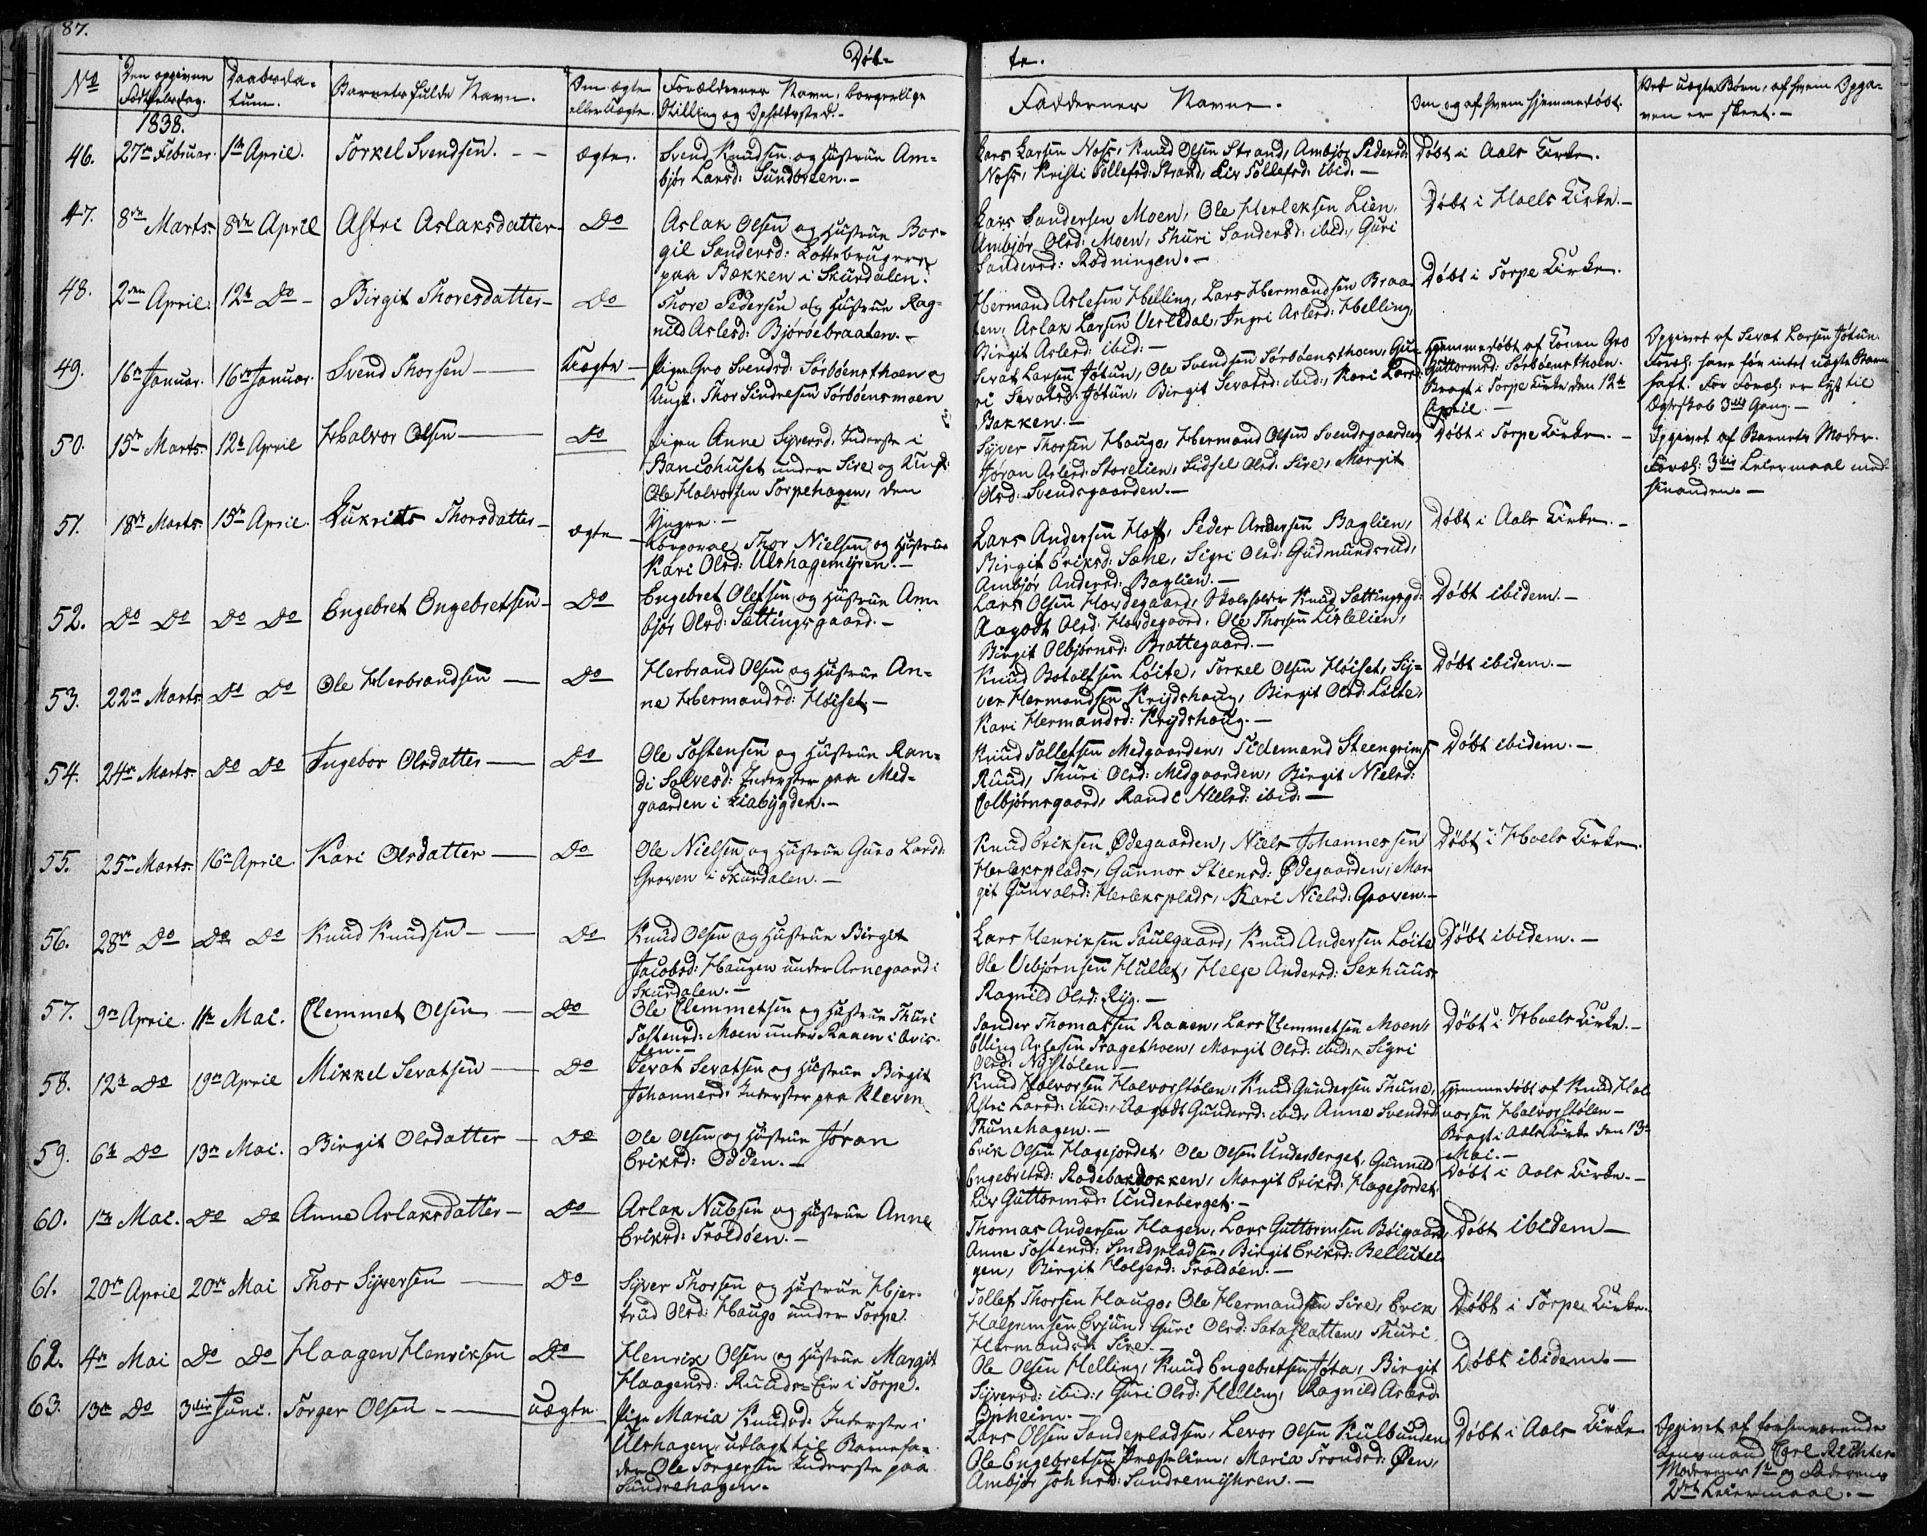 87.
Døb-
te.
No
Den opgivne
Fødselsdag.
Daabsda-
tum.
Barnets fulde Navn.
Om ægte
eller uægte.
Forældrenes Navn, borgerlige
Stilling og Opholdssted.-
Faddernes Navne.
Om og af hvem hjemmedøbt.
Ved uægte Børn, af hvem Opga-
ven er skeet.-
1838.
46. 27de Februar. 1ste April. Torkel Svendsen. - - ægte.
Svend Knudsen og Hustrue Am-
bjør Larsd: Sundbreen.-
Lars Larsen Noss, Knud Olsen Strand, Ambjør Pedersd:
Noss, Kristi Tollefsd: Strand, Liv Tollefsd: ibid.-
Døbt i Aals Kirke.
47. 8de Marts. 8de April Astri Aslaksdatter- Do
Aslak Olsen og Hustrue Bor-
gil Sandersd: Lottebrugere
paa Bækken i Skurdalen.
Lars Sandersen Moen, Ole Herleksen Lien,
Ambjør Olsd: Moen, Thuri Sandersd: ibid:, Guri
Sandersd: Rødningen.-
Døbt i Hoels Kirke.-
48. 2den April. 12te Do - Birgit Thoresdatter- Do
Thore Pedersen og Hustrue Rag-
nild Aslesd: Bjøröebraaten.-
Hermand Aslesen Helling, Lars Hermandsen Braa-
ten, Aslak Larsen Vestedal, Ingri Aslesd: Helling,
Birgit Aslesd: ibid:-
Døbt i Torpe Kirke.
49. 16de Januar. 16de Januar. Svend Thorsen --- Uægte-
Pige Gro Svendsd: Sørbøensthoen og
Ungk. Thor Sindresen Sørbøensmoen
Sevat Larsen Jøtun, Ole Svendsen Sørbøensthoen, Gu-
ri Sevatsd: Jøtun, Birgit Sevatsd: ibid:, Kari Larsd:
Bakken.-
Hjemmedøbt af Konen Gro
Guttormsd: Sørbøensthoen.
Bragt i Torpe Kirke den 12te
April.-
Opgivet af Sevat Larsen Jøtun.
Foræl: have før intet uægte Barn
haft. For Foræl: er lyst til
Ægteskab 3die Gang.-
50. 15de Marts. 12te April Halvor Olsen --- Do
Pigen Anne Syversd: Inderste i
Bancohuset under Sire og Ungk:
Ole Halvorsen Torpehagen, den
Yngre.-
Syver Thorsen Haugo, Hermand Olsen Svendsgaarden,
Jøran Aslesd: Storelien, Sidsel Olsd: Sire, Margit
Olsd: Svendsgaarden.-
Døbt i Torpe Kirke. -
Opgivet af Barnets Moder.
Foræl: 3die Leiermaal med
hinanden.-
51. 18de Marts. 15de April. Gukrids Thorsdatter- ægte-
Korporal Thor Nielsen og Hustrue
Kari Olsd: Ulshagemyren.-
Lars Andersen Hoff, Peder Andersen Baglien,
Birgit Eriksd: Sæhe, Sigri Olsd: Gudmundsrud,
Ambjør Andersd: Baglien.-
Døbt i Aals Kirke.-
52. Do Do Do Do Engebret Engebretsen- Do
Engebret Olefsen og Hustrue Am-
bjør Olsd: Sættingsgaard.-
Lars Olsen Hordegaard, Skoleholder Knud Sættingsgd:
Aagodt Olsd: Hordegaard, Ole Thorsen Lislelien,
Birgit Olbjørnsd: Brattegaard.-
Døbt ibidem.-
53. 22de Marts. Do Do Ole Herbrandsen - Do
Herbrand Olsen og Hustrue An-
ne Hermandsd: Høiset,-
Knud Botolfsen Løite, Torkel Olsen Høiset, Sy-
ver Hermandsen Krydshaug, Birgit Olsd: Løite,
Kari Hermandsd: Krydshaug.-
Døbt ibidem.-
54. 24de Marts. Do Do Ingebor Olsdatter- Do
Ole Tostensen og Hustrue Ran-
di Solvesd: Inderster paa Med-
gaarden i Liabygden.-
Knud Tollefsen Medgaarden, Tidemand Steengrims-
Ruud, Thuri Olsd: Medgaarden, Birgit Nielsd:
Colbjørnsgaard, Randi Nielsd: ibid:-
Døbt ibidem.-
55. 25de Marts. 16de April Kari Olsdatter- Do
Ole Nielsen og Hustrue Guro Larsd:
Groven i Skurdalen.-
Knud Eriksen Ødegaarden, Niels Johannessen
Herleksplads, Gunnor Steensd: Ødegaarden, Mar-
git Gunvalsd: Herleksplads, Kari Nielsd: Groven.-
Døbt i Hoels Kirke.
56. 28de Do Do Do Knud Knudsen - - Do
Knud Olsen og Hustrue Birgit
Jacobsd: Haugen under Arnegaard i
Skurdalen.-
Lars Henriksen Poulgaard, Knud Andersen Løite
Ole Uebjørnsen Hullet, Helge Andersd: Sexhuus
Ragnild Olsd: Ryg.-
Døbt ibidem.-
57. 9de April. 11te Mai. Clemmet Olsen - Do
Ole Clemmetsen og Hustrue Thuri
Tostensd: Moen under Raaen i Øvis-
len.-
Sander Thomassen Raaen, Lars Clemmetsen Moen,
Elling Aslesen Tragethoen, Margit Olsd: ibid:, Sigri
Olsd: Nystølen.-
Døbt i Hoels Kirke.-
58. 12te Do 19de April Mikkel Sevatsen - Do
Sevat Sevatsen og Hustrue Birgit
Johannesd: Inderster paa Kleven.
Knud Halvorsen Halvorsstølen, Knud Gundersen Thune,
Astri Larsd: ibid:, Aagodt Gundersd: ibid, Anne Svendsd:
Thunehagen.-
Hjemmedøbt af Knud Hal-
vorsen Halvorsstølen-
Bragt i Aals Kirke den 13de
Mai.-
59. 6te Do 13de Mai. Birgit Olsdatter - Do
Ole Olsen og Hustrue Jøran
Eriksd: Odden.-
Erik Olsen Hagejordet, Ole Olsen Underberget, Gunnild
Engebretsd: Rødebakkokken, Margit Eriksd: Hagejordet,
Liv Guttormsd: Underberget.-
Døbt i Aals Kirke.-
60. 1ste Mai. Do Do Anne Aslaksdatter- Do
Aslak Nubsen og Hustrue Anne
Eriksd: Troldøen.-
Thomas Andersen Hagen, Lars Guttormsen Bøigaard,
Anne Tostensd: Smedpladsen, Birgit Eriksd: Bellute-
gen, Birgit Holgersd: Troldøen.-
Døbt ibidem-
61. 20de April 20de Mai Thor Syversen --- Do
Syver Thorsen og Hustrue Hjer-
trud Olsd: Haugo under Torpe.
Tollef Thorsen Haugo, Ole Hermandsen Sire, Erik
Halgrimsen Evjun, Guri Olsd: Sataslatten, Thuri
Hermandsd: Sire.-
Døbt i Torpe Kirke.
62. 4de Mai Do Do Haagen Henriksen Do
Henrik Olsen og Hustrue Margit
Haagensd: Ruuds-Eie i Torpe.
Ole Olsen Helling, Knud Engebretsen Jøta, Birgit
Syversd: ibid:, Guri Olsd: Helling, Ragnild Aslesd:
Opheim.-
Døbt ibidem.-
63. 13de Do 3die Juni. Torger Olsen --- uægte.
Pige Maria Knudsd: Inderste i
Ulshagen, udlagt til Barnefa-
der Ole Torgersen Inderste paa
Sundrehagen.
Lars Olsen Sandepladsen, Levor Olsen Kulbunden
Ole Engebretsen Præstelien, Maria Trondsd: Øen,
Ambjør Johnsd: Sundremyhren.-
Døbt i Aals Kirke
Opgivet af forhenværende
Lensmand Carl Richter.
Moderens 1ste og Faderens
2det Leiermaal.-